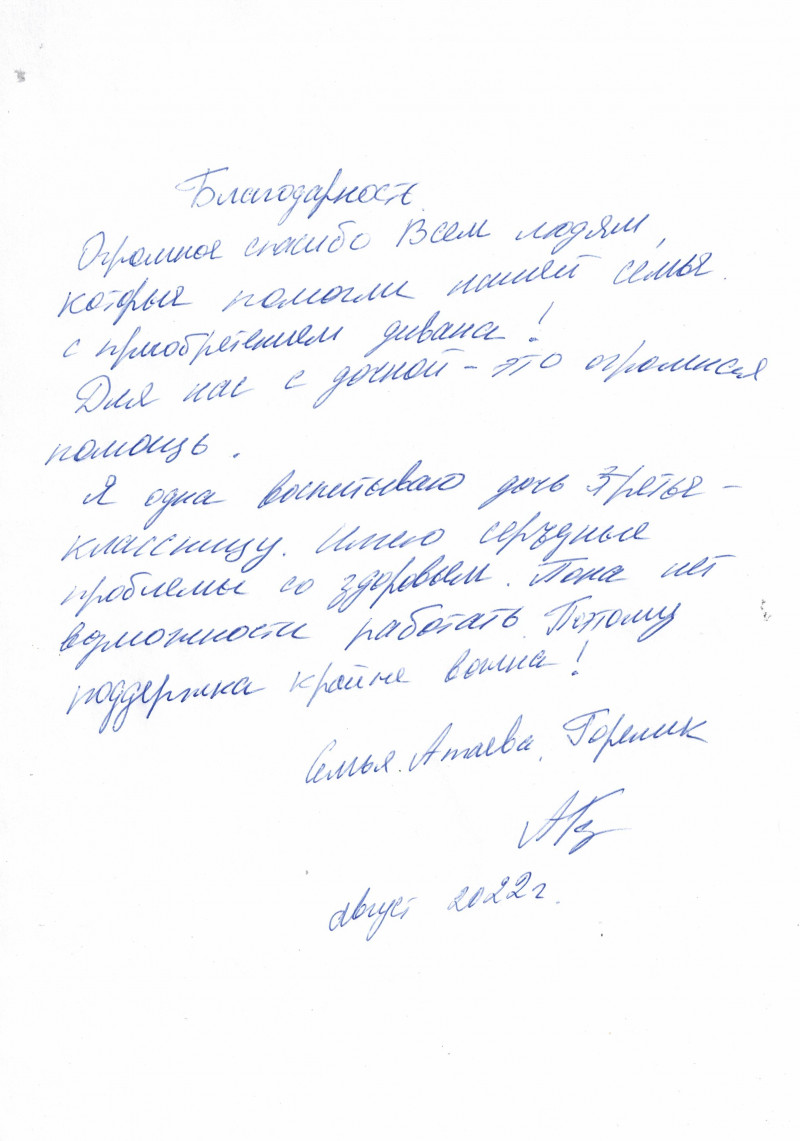 Благодарность.
Огромное спасибо Всем людям,
которые помогли нашей семье
с приобретением дивана!
Для нас с дочкой - это огромная
помощь.
Я одна воспитываю дочь третье-
классницу. Имею серьёзные
проблемы со здоровьем. Пока нет
возможности работать. Поэтому
поддержка крайне важна!
Семья Атаева, Горелик
август 2022г.